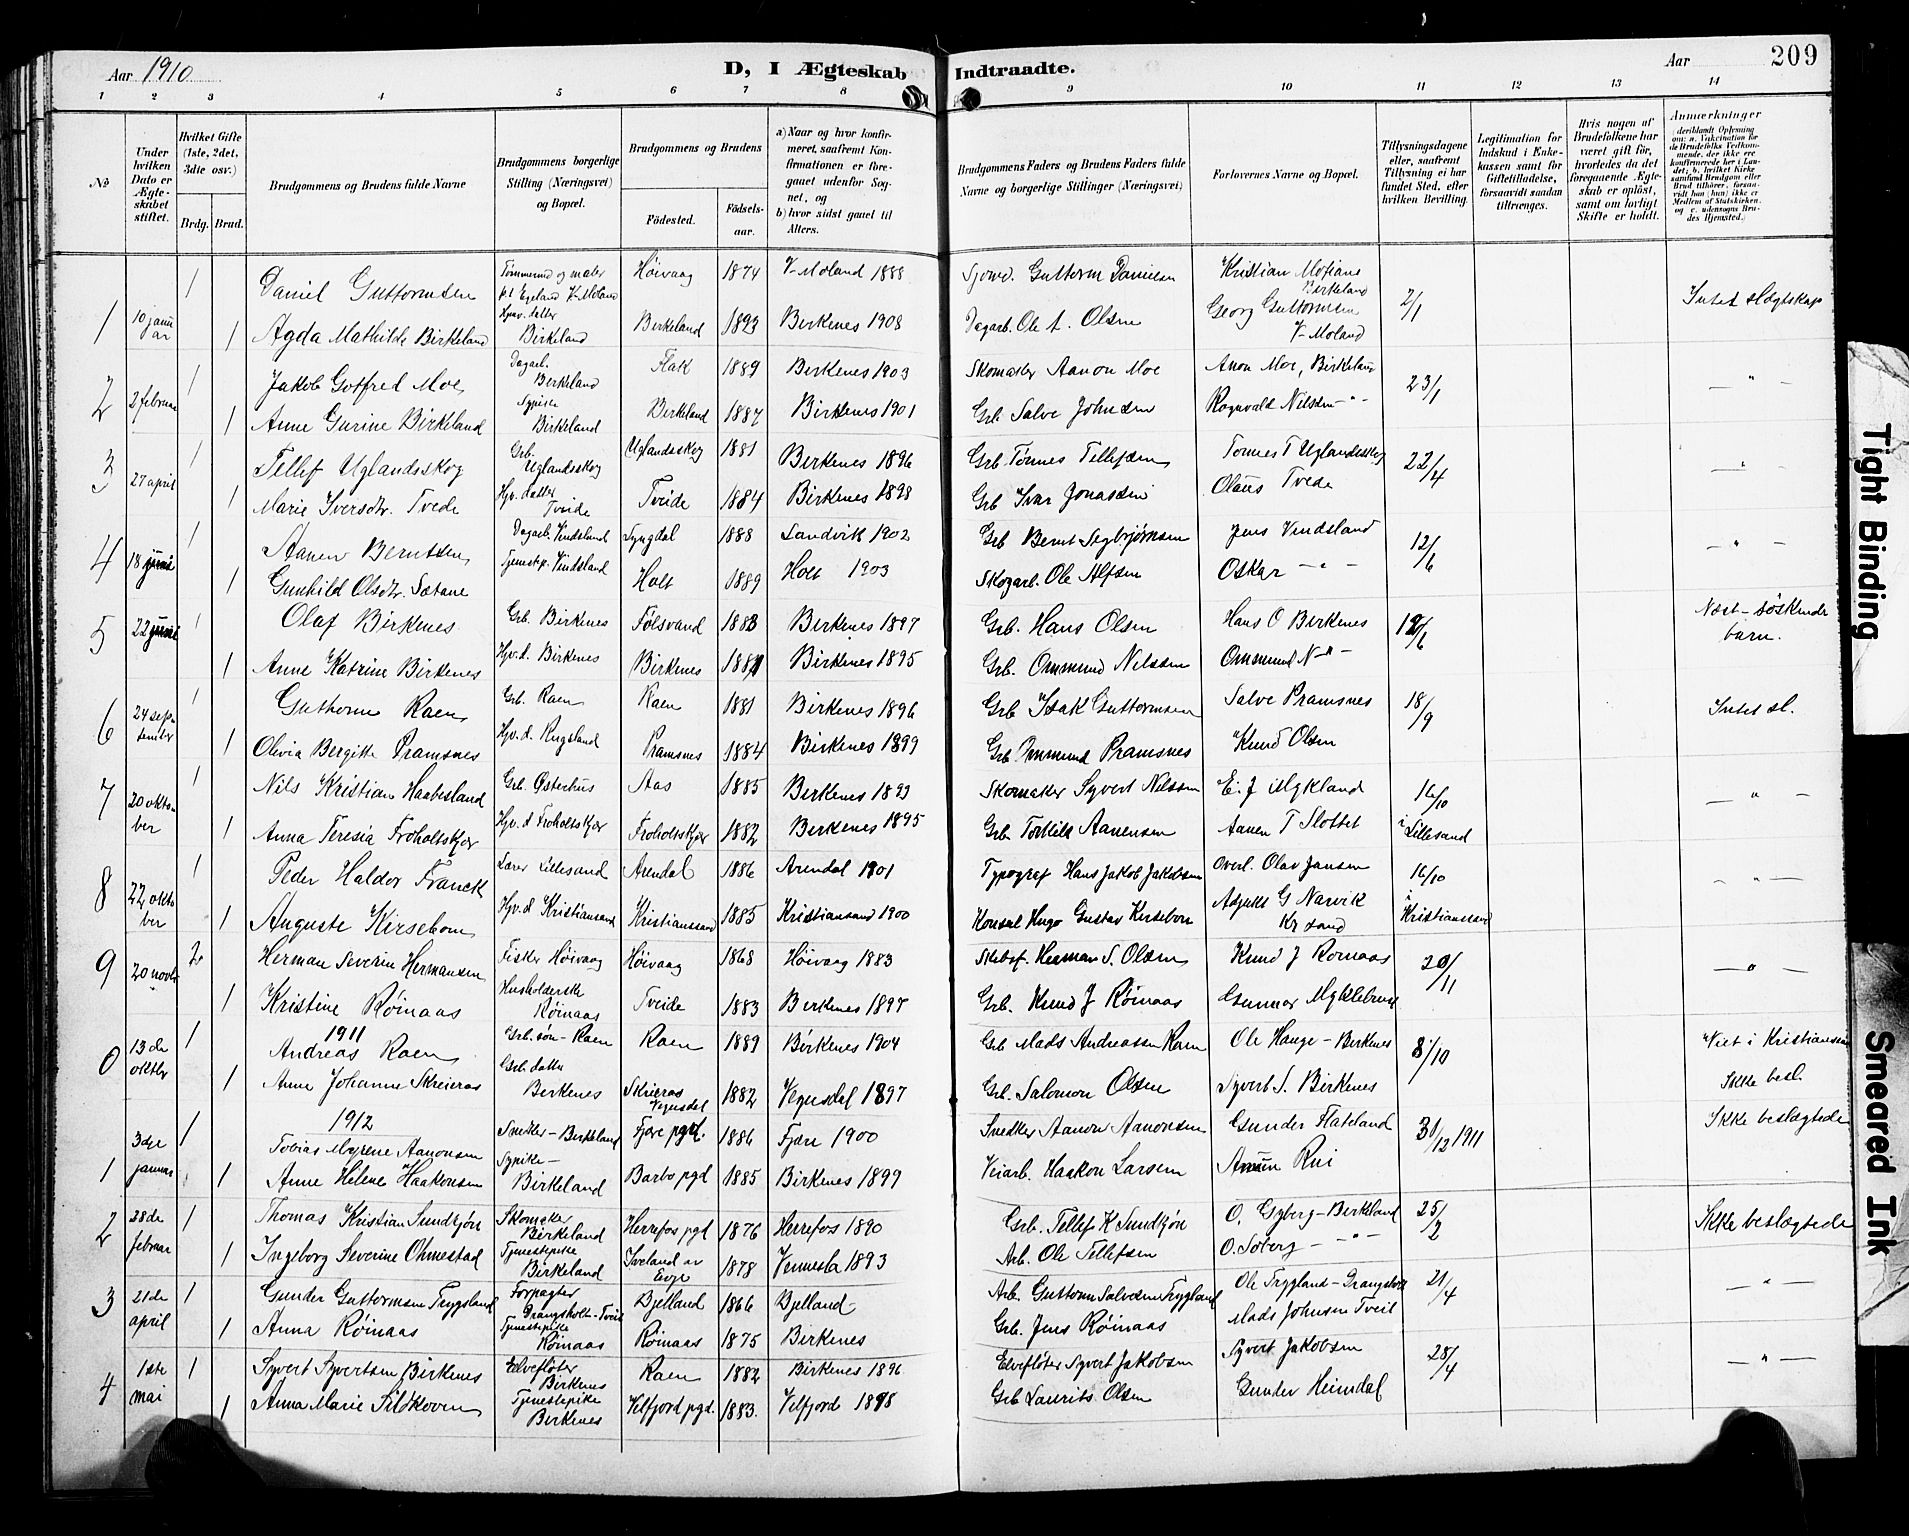 Aar 1910
D, I Ægteskab Indtraadte.
Aar
209
1 2 3 4 5 6 7 8 9 10 11 12 13 14
No
Under hvilken Dato er Ægteskabet stiftet.
Hvilket Gifte (1ste, 2det, 3dte osv.)
Brdg. Brud.
Brudgommens og Brudens fulde Navne
Brudgommens borgerlige Stilling (Næringsvei) og Bopæl.
Brudgommens og Brudens
Fødested.
Fødselsaar.
a) Naar og hvor konfirmeret, saafremt Konfirmationen er foregaaet udenfor Sognet, og
b) hvor sidst gaaet til Alters.
Brudgommens Faders og Brudens Faders fulde Navne og borgerlige Stillinger (Næringsvei)
Forlovernes Navne og Bopæl.
Tillysningsdagene eller, saafremt Tillysning ei har fundet Sted, efter hvilken Bevilling.
Legitimation for Indskud i Enkekassen samt for Giftetilladelse, forsaavidt saadan tiltrænges.
Hvis nogen af Brudefolkene har været gift før, hvorledes da det foregaaende Ægteskab er opløst, samt om lovligt Skifte er holdt.
Anmerkninger
1 10 januar 1 Daniel Guttormsen Tømmermd og maler p.t Egeland V-Moland Høivaag 1874 V-Moland 1888 Sjømd. Guttorm Danielsen Kristian Mofians Birkeland 2/1 Intet slægtskap
1 Agda Mathilde Birkeland Hjmv. datter Birkeland Birkeland 1893 Birkenes 1908 Dagarb. Ole A. Olsen Georg Guttormsen V-Moland
2 2 februar 1 Jakob Gotfred Moe Dagarb. Birkeland Flak 1889 Birkenes 1903 Skomaker Aanon Moe Anon Moe, Birkeland 23/1 — " —
1 Anne Gurine Birkeland Sypike Birkeland Birkeland 1887 Birkenes 1901 Grb. Salve Johnsen Rognvald Nilsen - " -
3 27 april 1 Tellef Uglandsskog Grb. Uglandsskog Uglandsskog 1881 Birkenes 1896 Grb. Tønnes Tellefsen Tønnes T Uglandsskog 22/4 — " —
1 Marie Iversdtr. Tvede Hjv. datter Tveide Tveide 1884 Birkenes 1898 Grb Ivar Jonassen Olaus Tvede
4 18 juni 1 Aanen Berntsen Dagarb. Vindsland Lyngdal 1888 Landvik 1902 Grb Bernt Segbjørnsen Jens Vindsland 12/6 — " —
1 Gunhild Olsdtr. Sætane Tjenestp. Vindsland Holt 1889 Holt 1903 Skogarb. Ole Alfsen Oskar — " —
5 22 juni 1 Olaf Birkenes Grb. Birkenes Følsvand 1883 Birkenes 1897 Grb. Hans Olsen Hans O Birkenes 12/6 Næst-søskendebarn.
1 Anne Katrine Birkenes Hjv. d. Birkenes Birkenes 1881 Birkenes 1895 Grb. Ommund Nilssen Ommund N - " -
6 24 september 1 Guthorm Raen Grb. Raen Raen 1881 Birkenes 1896 Grb Isak Guttormsen Salve Pramsnes 18/9 Intet sl.
1 Olivia Bergitte Pramsnes Hjv. d. Rugsland Pramsnes 1884 Birkenes 1899 Grb. Ommund Pramsnes Knud Olsen
7 20 oktober 1 Nils Kristian Haabesland Grb. Østerhus Aas 1885 Birkenes 1899 Skomaker Syvert Nilssen E. J Mykland 16/10 — " —
1 Anna Teresia Froholtskjær Hjv. d Froholtskjær Froholtskjær 1882 Birkenes 1895 Grb Torkild Aanensen Aanen T Slottet i Lillesand
8 22 oktober 1 Peder Haldor Franck Lærer Lillesand Arendal 1886 Arendal 1901 Typograf Hans Jakob Jakobsen Overl. Olav Jansen 16/10 — " —
1 Auguste Kirsebom Hjv. d Kristiansand Kristianssand 1885 Kristiansand 1900 Konsul Hugo Gustav Kirsebom Adjunkt G Narvik Kr sand i Kristianssand
9 20 novbr 2 Herman Severin Hermansen Fisker Høivaag Høivaag 1868 Høivaag 1883 Skibsf. Herman S. Olsen Knud J Rømaas 20/11 — " —
1 Kristine Røinaas Husholderske Røinaas Tveide 1883 Birkenes 1897 Grb. Knud J Røinaas Gunnar Myklebust
1911
0 13 de oktbr 1 Andreas Raen Grb. søn - Raen Raen 1889 Birkenes 1904 Grb Mads Andreassen Raen Ole Hauge - Birkenes 8/10 Viet i Kristiansand
1 Anne Johanne Skreieros Grb. datter Birkenes Skreieros Vegusdal 1882 Vegusdal 1897 Grb. Salomon Olsen Syvert S. Birkenes Ikke besl.
1912
1 3 dje januar 1 Tobias Myrene Aanonsen Snedker - Birkeland Fjære pgd. 1886 Fjære 1900 Snedker Aanon Aanonsen Gunder Flateland 31/12 1911 Ikke beslægtede
1 Anne Helene Haakonsen Sypike - Birkeland Barbo pgd 1885 Birkenes 1899 Veiarb. Haakon Larsen Rui
2 28 de februar 1 Thomas Kristian Sundtjøn Skomaker Birkeland Herrefos pgd 1876 Herrefos 1890 Grb. Tellef K Sundtjøn O. Gyberg - Birkeland 25/2 Ikke beslægtede
1 Ingeborg Severine Ohmestad Tjenestepike Birkeland Iveland av Evje 1878 Vennesla 1893 Arb. Ole Tellefsen O. Soberg - " -
3 21 de april 1 Gunder Guttormsen Trygsland Forpagter Drangsholt-Tveit Bjelland 1866 Bjelland Arb. Guttorm Salvesen Trygland Ole Trygland - Drangsholt 21/4 — " —
1 Anna Røinaas Tjenestepike Røinaas Røinaas 1875 Birkenes Grb. Jens Røinaas Mads Johnsen Tveit
4 1ste mai 1 Syvert Syvertsen Birkenes Elvefløter Birkenes Raen 1882 Birkenes 1896 Elvefløter Syvert Jakobsen Syvert Jakobsen 28/4 — " —
1 Anna Marie Sildkoven Tjenestepike Birkenes Velfjord pgd. 1883. Velfjord 1898 Grb Laurits Olsen Gunder Heimdal
Tight Binding
Smeared Ink